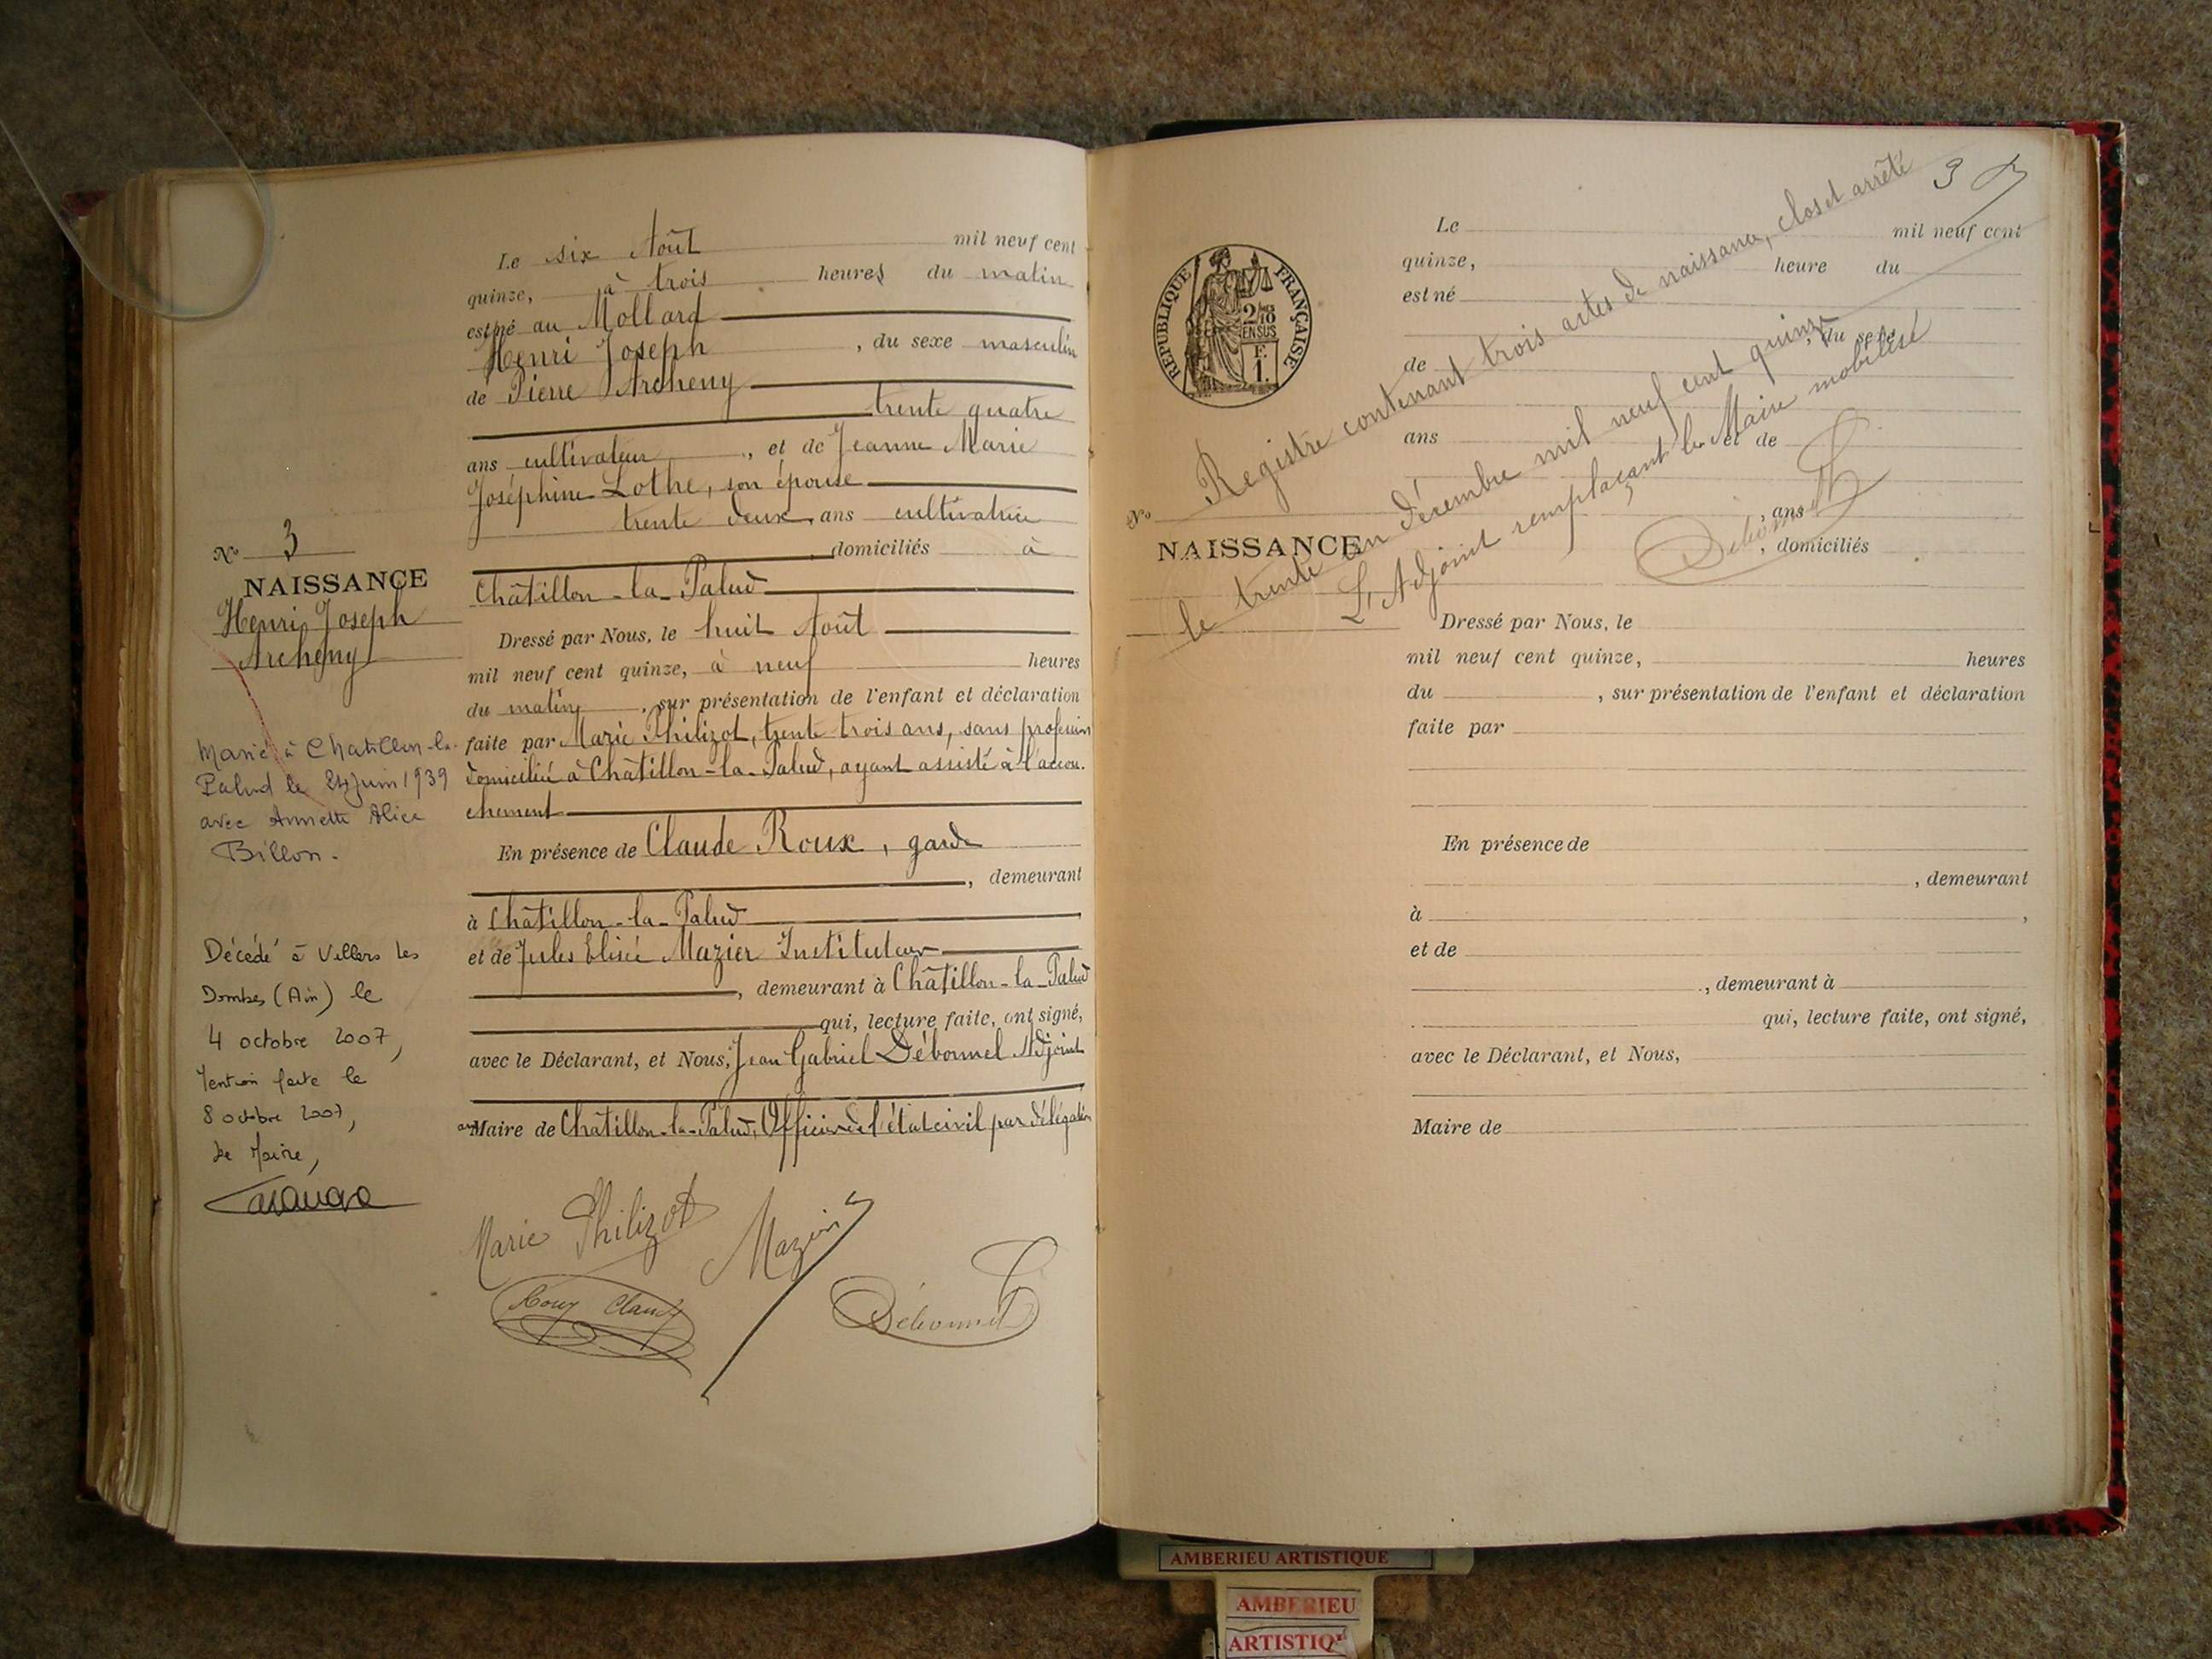 Le six Août mil neuf cent
quinze, à trois heures du matin
est né au Mollard
Henri Joseph, du sexe masculin
de Pierre Archeny
trente quatre
ans cultivateur, et de Jeanne Marie
Joséphine Lothe, son épouse
trente deux, ans cultivatrice
, domiciliés à
Châtillon-la-Palud
Dressé par Nous, le huit Août
mil neuf cent quinze, à neuf heures
du matin, sur présentation de l'enfant et déclaration
faite par Marie Philizot, trente trois ans, sans profession
domiciliée à Châtillon-la-Palud, ayant assisté à l'accou-
chement
En présence de Claude Roux, garde
, demeurant
à Châtillon-la-Palud
et de Jules Elisée Mazier Instituteur
, demeurant à Châtillon-la-Palud
qui, lecture faite, ont signé,
avec le Déclarant, et Nous, Jean Gabriel Débonnel Adjoint
au Maire de Châtillon-la-Palud, Officier de l'état civil par délégation
Marie Philizot Mazier
Roux Claude Débonnel
No 3
NAISSANCE
Henri Joseph
Archeny
Marié à Chatillon-la-
Palud le 24 juin 1939
avec Annette Alice
Billon.
Décédé à Villars les
Dombes (Ain) le
4 octobre 2007,
Mention faite le
8 octobre 2007,
Le Maire,
3
Registre contenant trois actes de naissance, clos et arrêté
le trente un décembre mil neuf cent quinze
L'Adjoint remplaçant le Maire mobilisé
Débonnel
RÉPUBLIQUE FRANÇAISE
2/10
EN SUS
F.
1.
No
NAISSANCE
Le mil neuf cent
quinze, heure du
est né
, du sexe
de
ans et de
, ans
, domiciliés
Dressé par Nous, le
mil neuf cent quinze, heures
du , sur présentation de l'enfant et déclaration
faite par
En présence de
, demeurant
à ,
et de
, demeurant à
qui, lecture faite, ont signé,
avec le Déclarant, et Nous,
Maire de
AMBERIEU ARTISTIQUE
AMBERIEU
ARTISTIQ